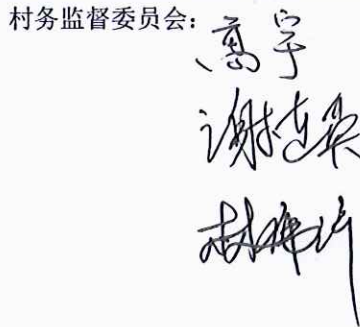 村务监督委员会：
高宇
谢连英